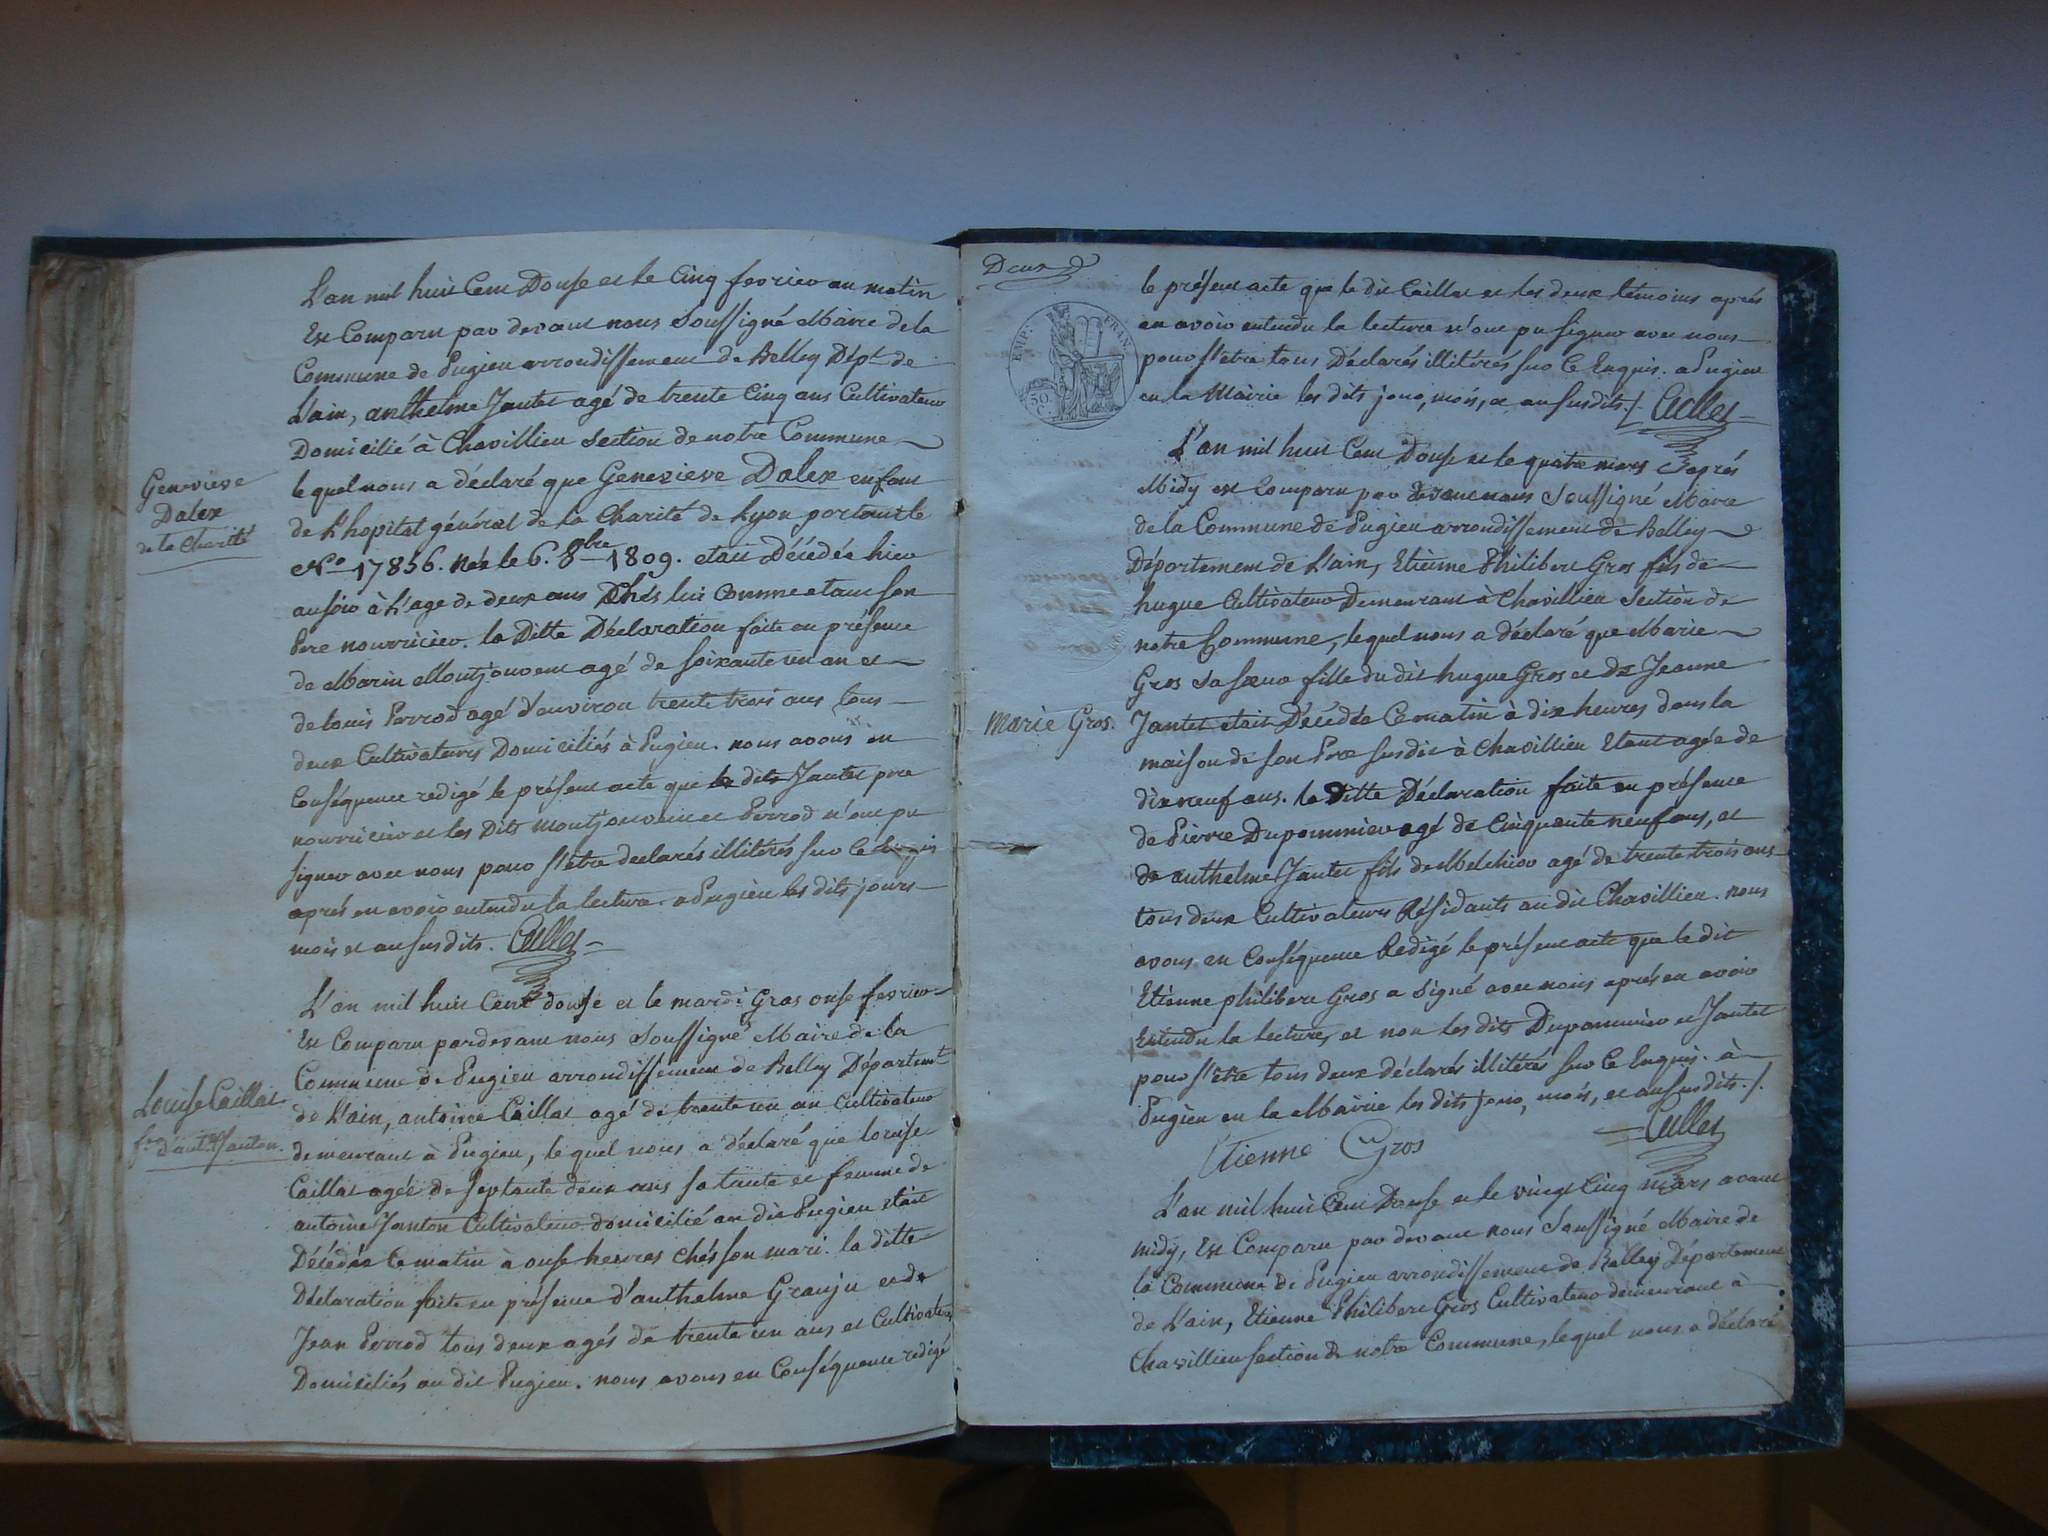 L'an mil huit Cent Douse et le Cinq fevrier au matin
Est Comparu par devant nous Soussigné Maire de la
Commune de Pugieu arrondissement de Belley Dépt. de
L'ain, anthelme Jantet agé de trente Cinq ans Cultivateur
Domicilié à Chavillieu Section de notre Commune
Genevieve
Dalex
de la Charité
le quel nous a déclaré que Genevieve Dalex enfant
de L'hopital général de la Charité de Lyon portant le
No. 17856. Née le 6. 8bre 1809. etait Décédée hier
au soir à L'age de deux ans Chés lui Comme etant son
Pere nourricier. la Ditte Déclaration faite en présence
de Marin Montjouvent agé de soixante un an et
de louis Perrod agé d'environ trente trois ans tous
deux Cultivateurs Domiciliés à Pugieu. nous avons en
Conséquence redigé le présent acte que le dit Jantet pere
nourricier et les Dits Montjouvent et Perrod n'ont pu
signer avec nous pour s'être declarés illitérés sur Ce Enquis
après en avoir entendu la lecture. a Pugieu les dits jours
mois et an susdits. Cullet
L'an mil huit Cent douse et le mardi Gras onse fevrier
Est Comparu pardevant nous Soussigné Maire de la
Commune de Pugieu arrondissement de Belley Département
Louise Caillat
fe. d'ant. Janton.
de L'ain, antoine Caillat agé de trente un an Cultivateur
demeurant à Pugieu, le quel nous a déclaré que louise
Caillat agée de septante deux ans sa tante et femme de
antoine Janton Cultivateur domicilié au dit Pugieu etait
Décédée Ce matin à onse heures chés son mari. la ditte
Déclaration faite en présence d'anthelme Granju et de
Jean Perrod tous deux agés de trente un ans et Cultivateurs
Domiciliés au dit Pugieu. nous avons en Conséquence redigé
Deux
EMP. FRAN.
50.
le présent acte que le dit Caillat et les deux témoins après
en avoir entendu la lecture n'ont pu signer avec nous
pour s'etre tous Déclarés illitérés sur Ce Enquis. a Pugieu
en la Mairie les dits jour, mois, et an susdits ./. Cullet
L'an mil huit Cent Douse et le quatre mars d'après
Midy est Comparu par devant nous Soussigné Maire
de la Commune de Pugieu arrondissement de Belley
Département de L'ain, Etienne Philibert Gros fils de
hugue Cultivateur Demeurant à Chavillieu Section de
notre Commune, lequel nous a déclaré que Marie
Gros sa soeur fille du dit hugue Gros et de Jeanne
Marie Gros.
Jantet etait Décédée Ce matin à dix heures dans la
maison de son Pere susdit à Chavillieu Etant agée de
dix neuf ans. la Ditte Déclaration faite en présence
de Pierre Dupommier agé de Cinquante neuf ans, et
de anthelme Jantet fils de Melchior agé de trente trois ans
tous deux Cultivateurs Résidants au dit Chavillieu. nous
avons en Conséquence Redigé le présent acte que le dit
Etienne philibert Gros a Signé avec nous après en avoir
Entendu la lecture, et non les dits Dupommier et Jantet
pour s'etre tous deux déclarés illitérés sur Ce Enquis. à
Pugieu en la Mairie les dits jour, mois, et an susdits ./.
Etienne Gros
Cullet
L'an mil huit Cent Douse et le vingt Cinq mars avant
midy, Est Comparu par devant nous Soussigné Maire de
la Commune de Pugieu arrondissement de Belley Département
de L'ain, Etienne Philibert Gros Cultivateur demeurant à
Chavillieu section de notre Commune, lequel nous a déclaré